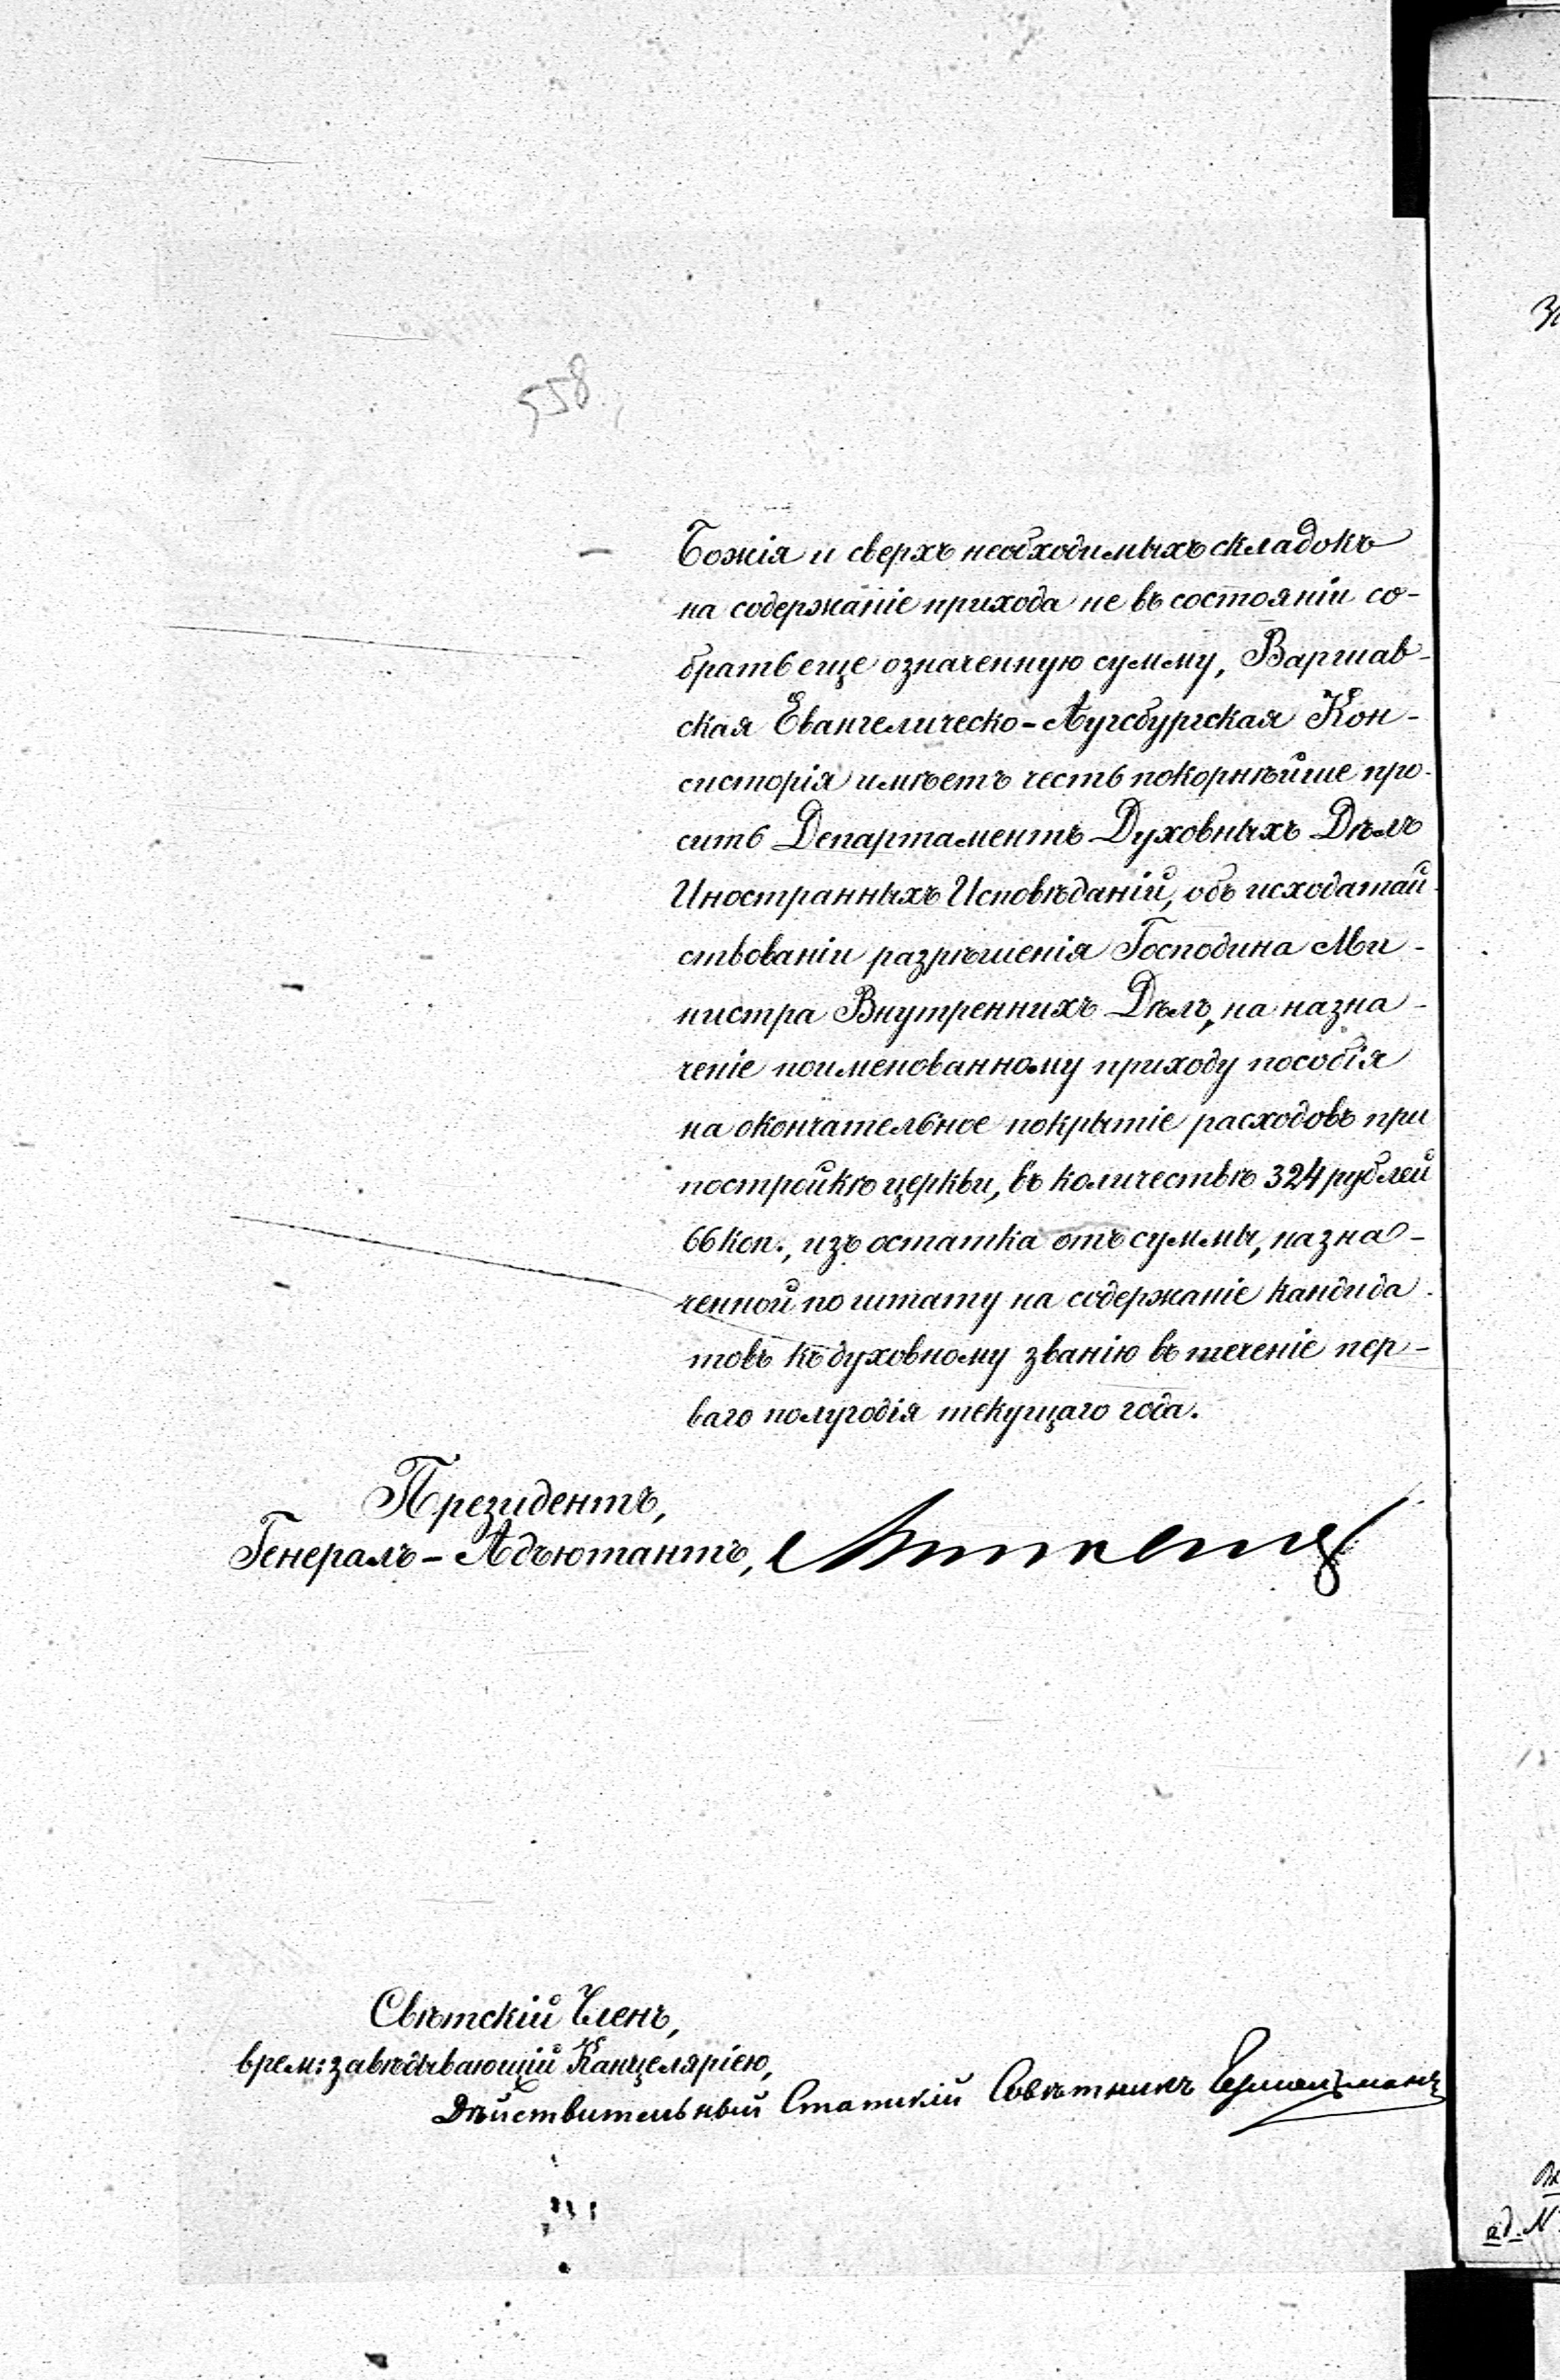 558
Божія и сверхъ необходимыхъ складокъ
на содержаніе прихода не въ состояніи со-
брать еще означенную сумму, Варшав-
ская Евангелическо-Аугсбургская Кон-
систорія имѣетъ честь покорнѣйше про-
сить Департаментъ Духовныхъ Дѣлъ
Иностранныхъ Исповѣданій, объ исходатай-
ствованіи разрѣшенія Господина Ми-
нистра Внутреннихъ Дѣлъ, на назна-
ченіе поименованному приходу пособія
на окончательное покрытіе расходовъ при
постройкѣ церкви, въ количествѣ 324 рублей
66 коп., изъ остатка отъ суммы, назна-
ченной по штату на содержаніе кандида-
товъ къ духовному званію въ теченіе пер-
ваго полугодія текущаго года.
Президентъ,
Генералъ-Адъютантъ,
Свѣтскій Членъ,
врем: завѣдывающій Канцеляріею,
Дѣйствительный Статскій Совѣтникъ